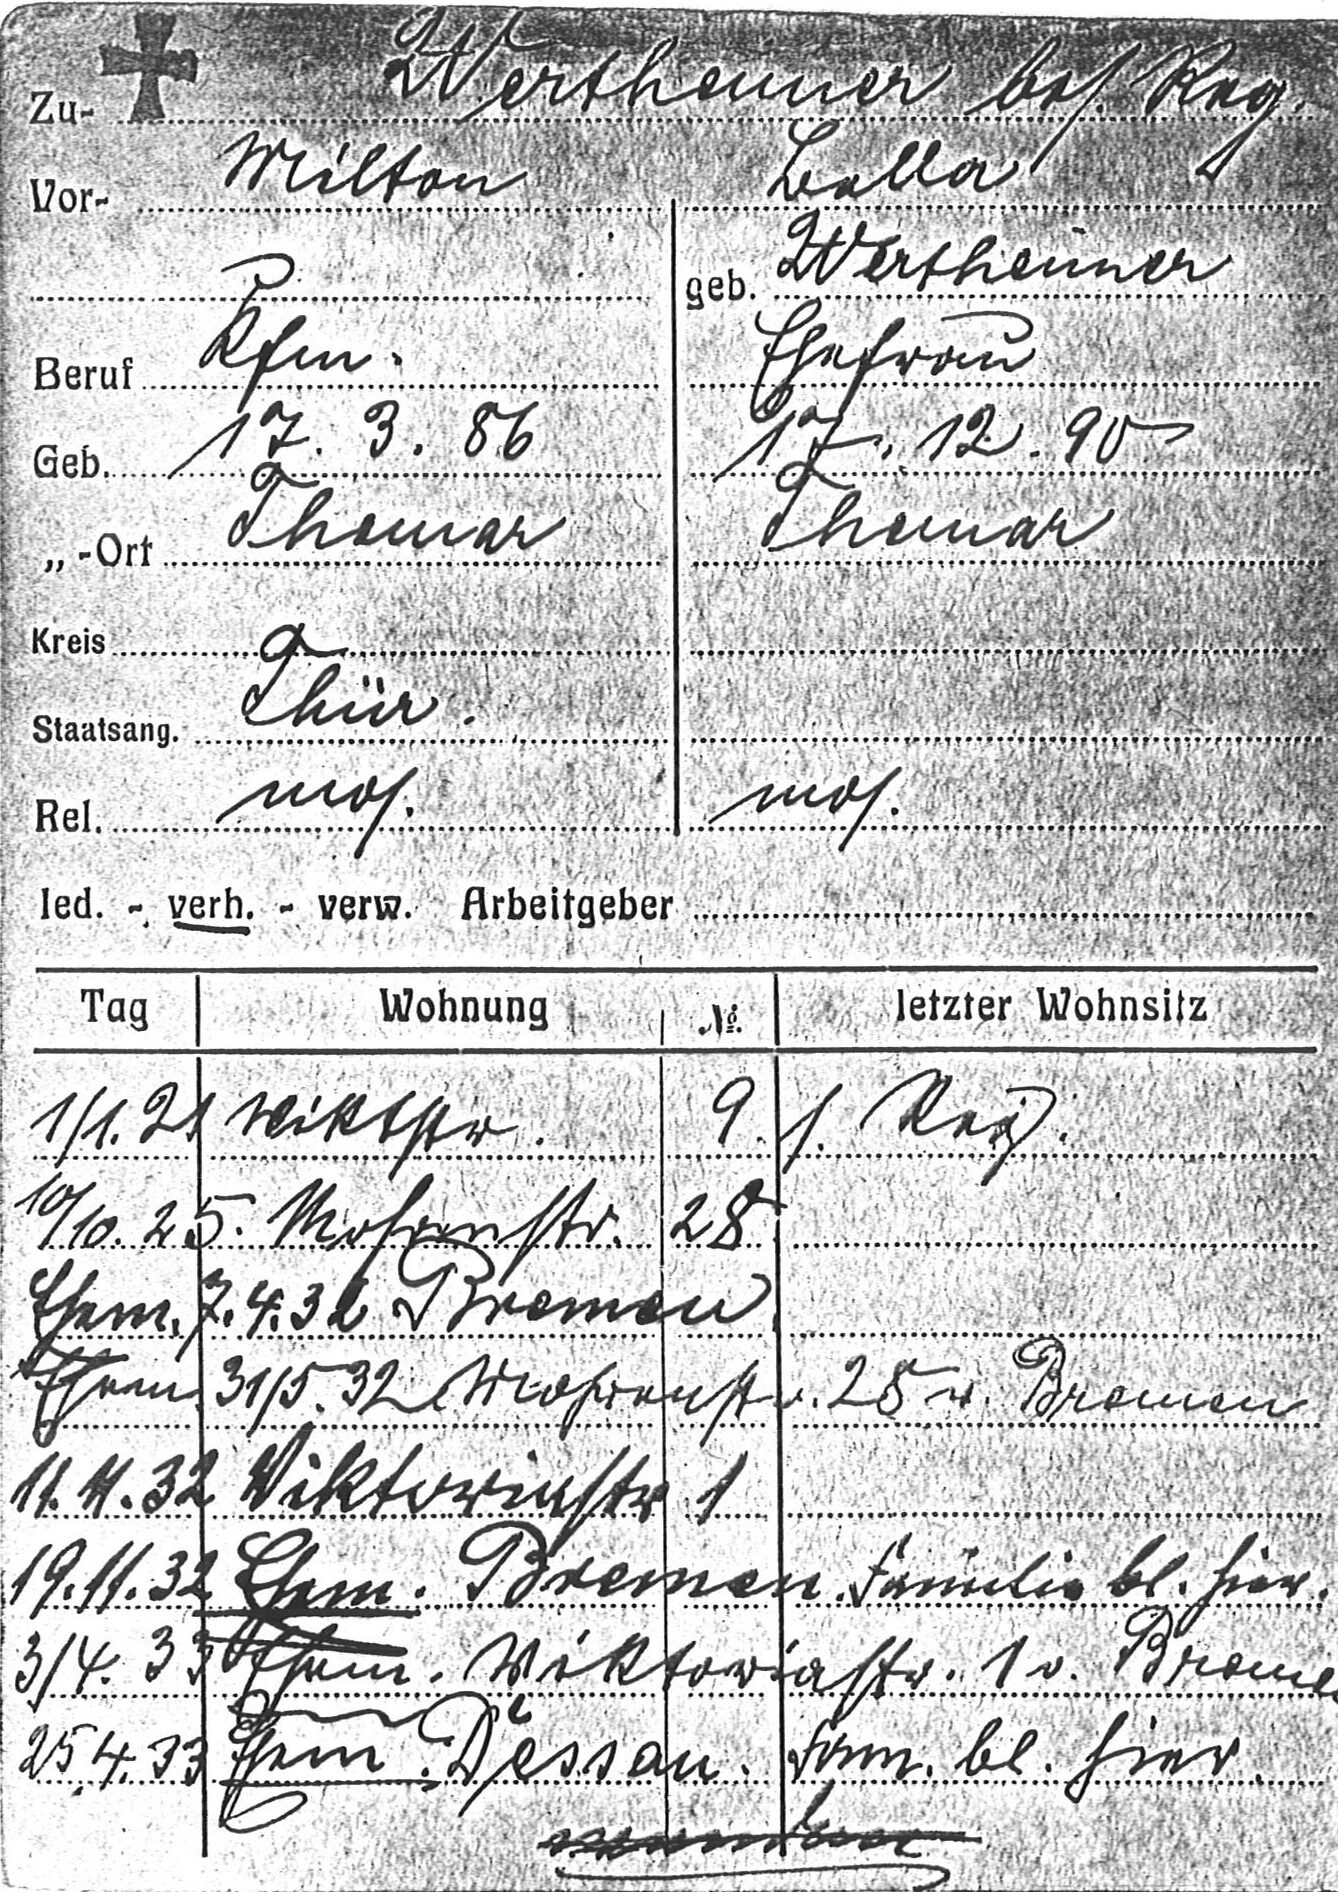 Zu- Wertheimer bes. Reg.
Vor- Milton Bella
geb. Wertheimer
Beruf Kfm. Ehefrau
Geb. 17. 3. 86 17. 12. 90
„-Ort Themar Themar
Kreis
Staatsang. Thür.
Rel. mos. mos.
led. - verh. - verw. Arbeitgeber
Tag Wohnung No. letzter Wohnsitz
1/1. 21 Viktstr. 9. s. Reg.
10/10. 25. Mohrenstr. 28
Ehem. 7.4.32 Bremen
Ehem. 31/5.32 Mohrenstr. 28 v. Bremen
11.11.32 Viktoriastr 1
19.11.32 Ehem. Bremen. Familie bl. hier.
3/4. 33 Ehem. Viktoriastr. 1 v. Breme
25.4.33 Ehem. Dessau. Fam. bl. hier.